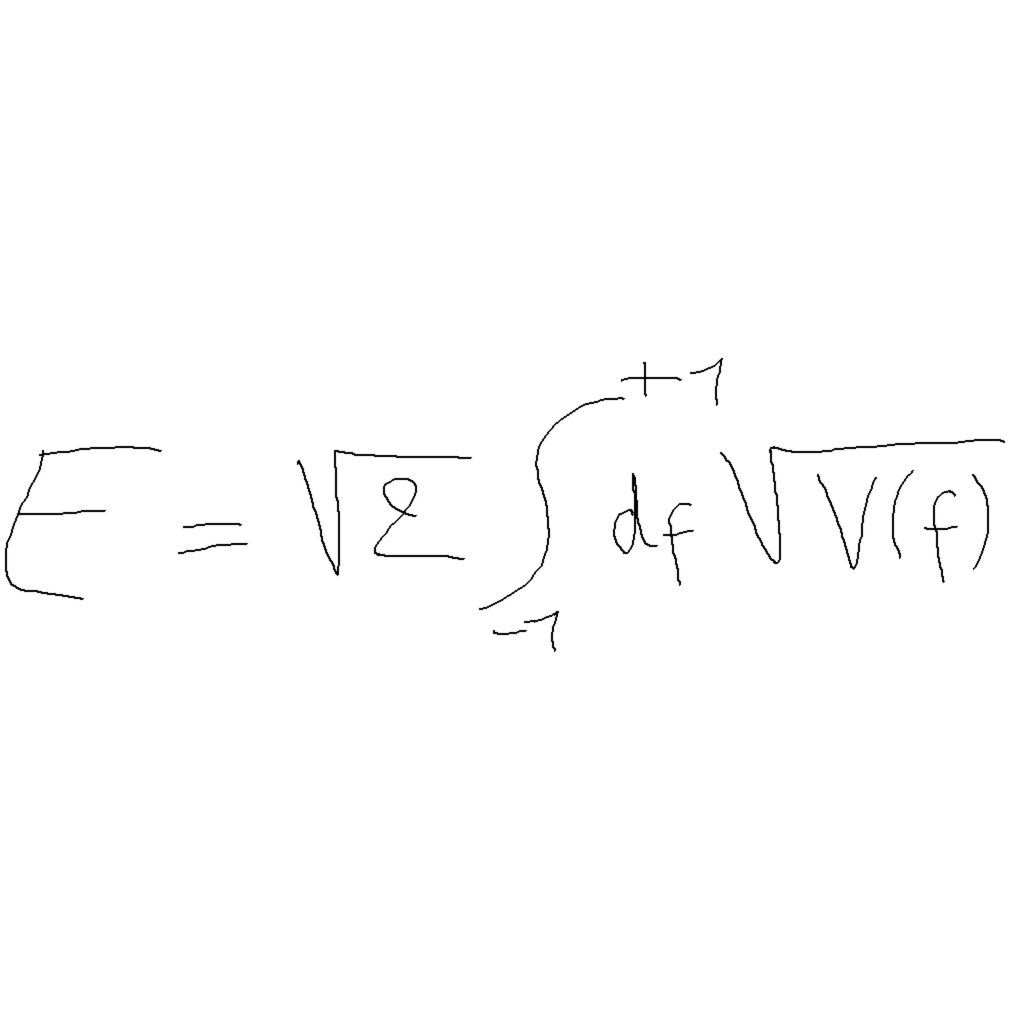 E = \sqrt{2} \int_{-1}^{+1} df \sqrt{V(f)}